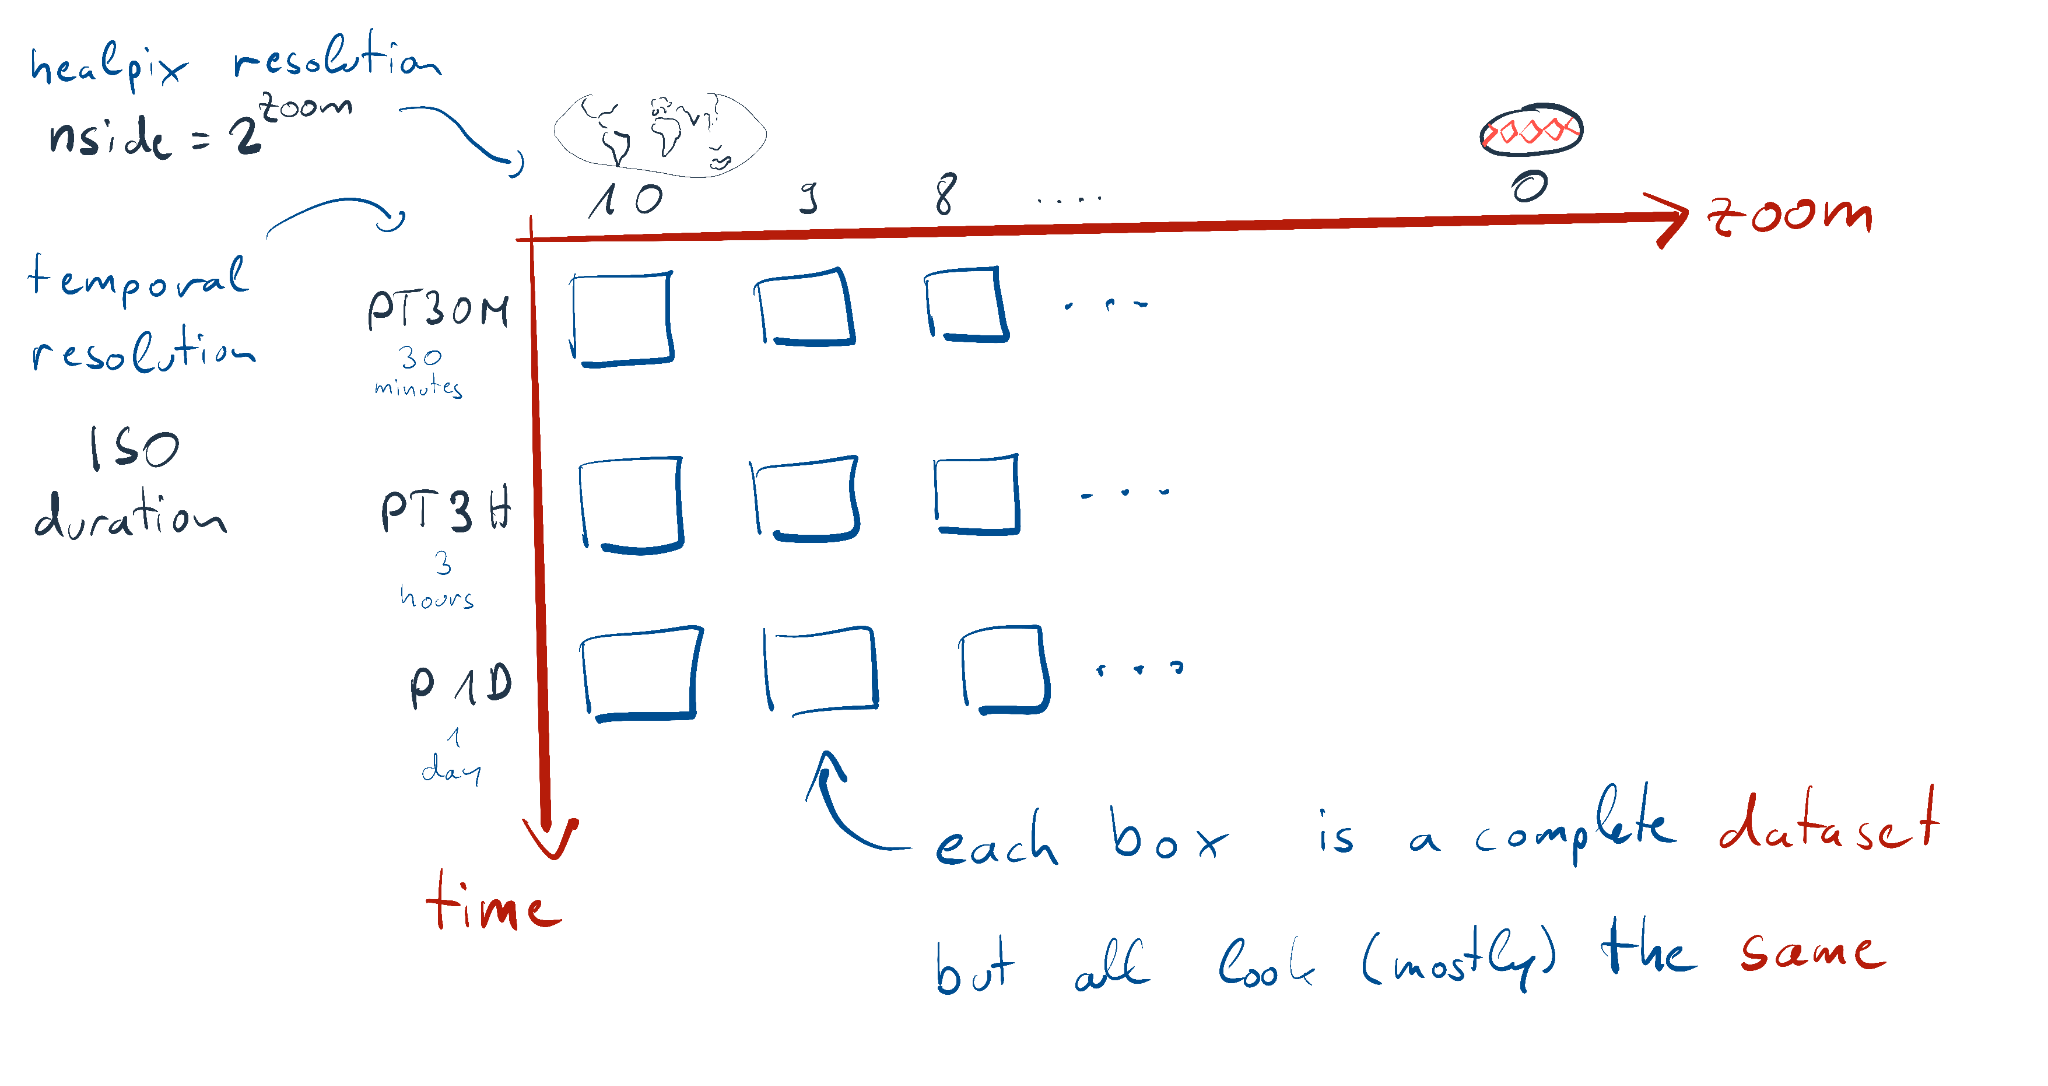 healpix resolution
nside = 2^zoom
10 9 8 .... 0
zoom
temporal
resolution
ISO
duration
PT30M
30
minutes
...
PT3H
3
hours
...
P1D
1
day
...
time
each box is a complete dataset
but all look (mostly) the same